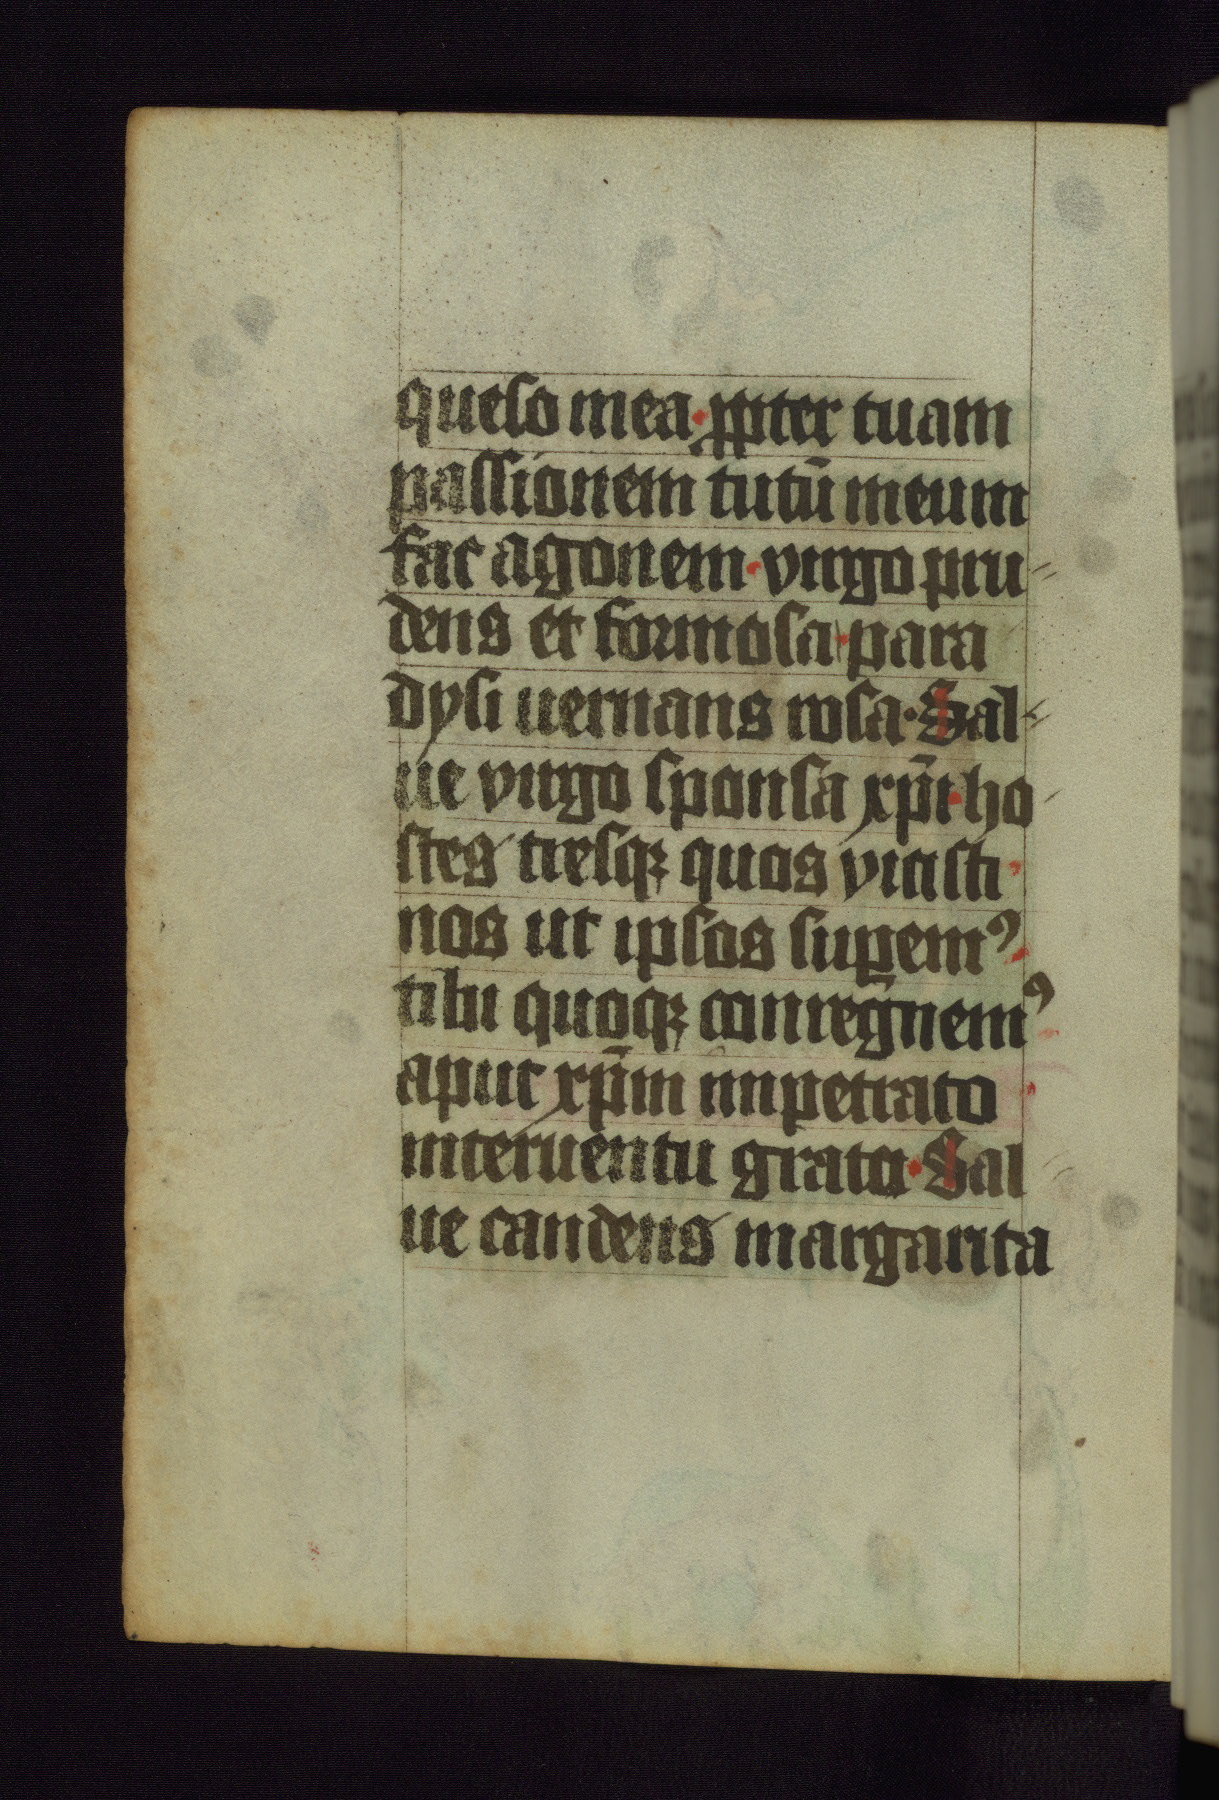 queso mea · ꝓpter tuam
passionem tutū meum
fac agonem · virgo pru
dens et formosa · para
dysi uernans rosa · Sal
ue virgo sponsa xp̄i · ho
stes tresqꝫ quos vicisti ·
nos ut ipsos suꝑemꝰ
tibi quoqꝫ conregnemꝰ
aput xp̄m impetrato
interuentu grato · Sal
ue candens margarita